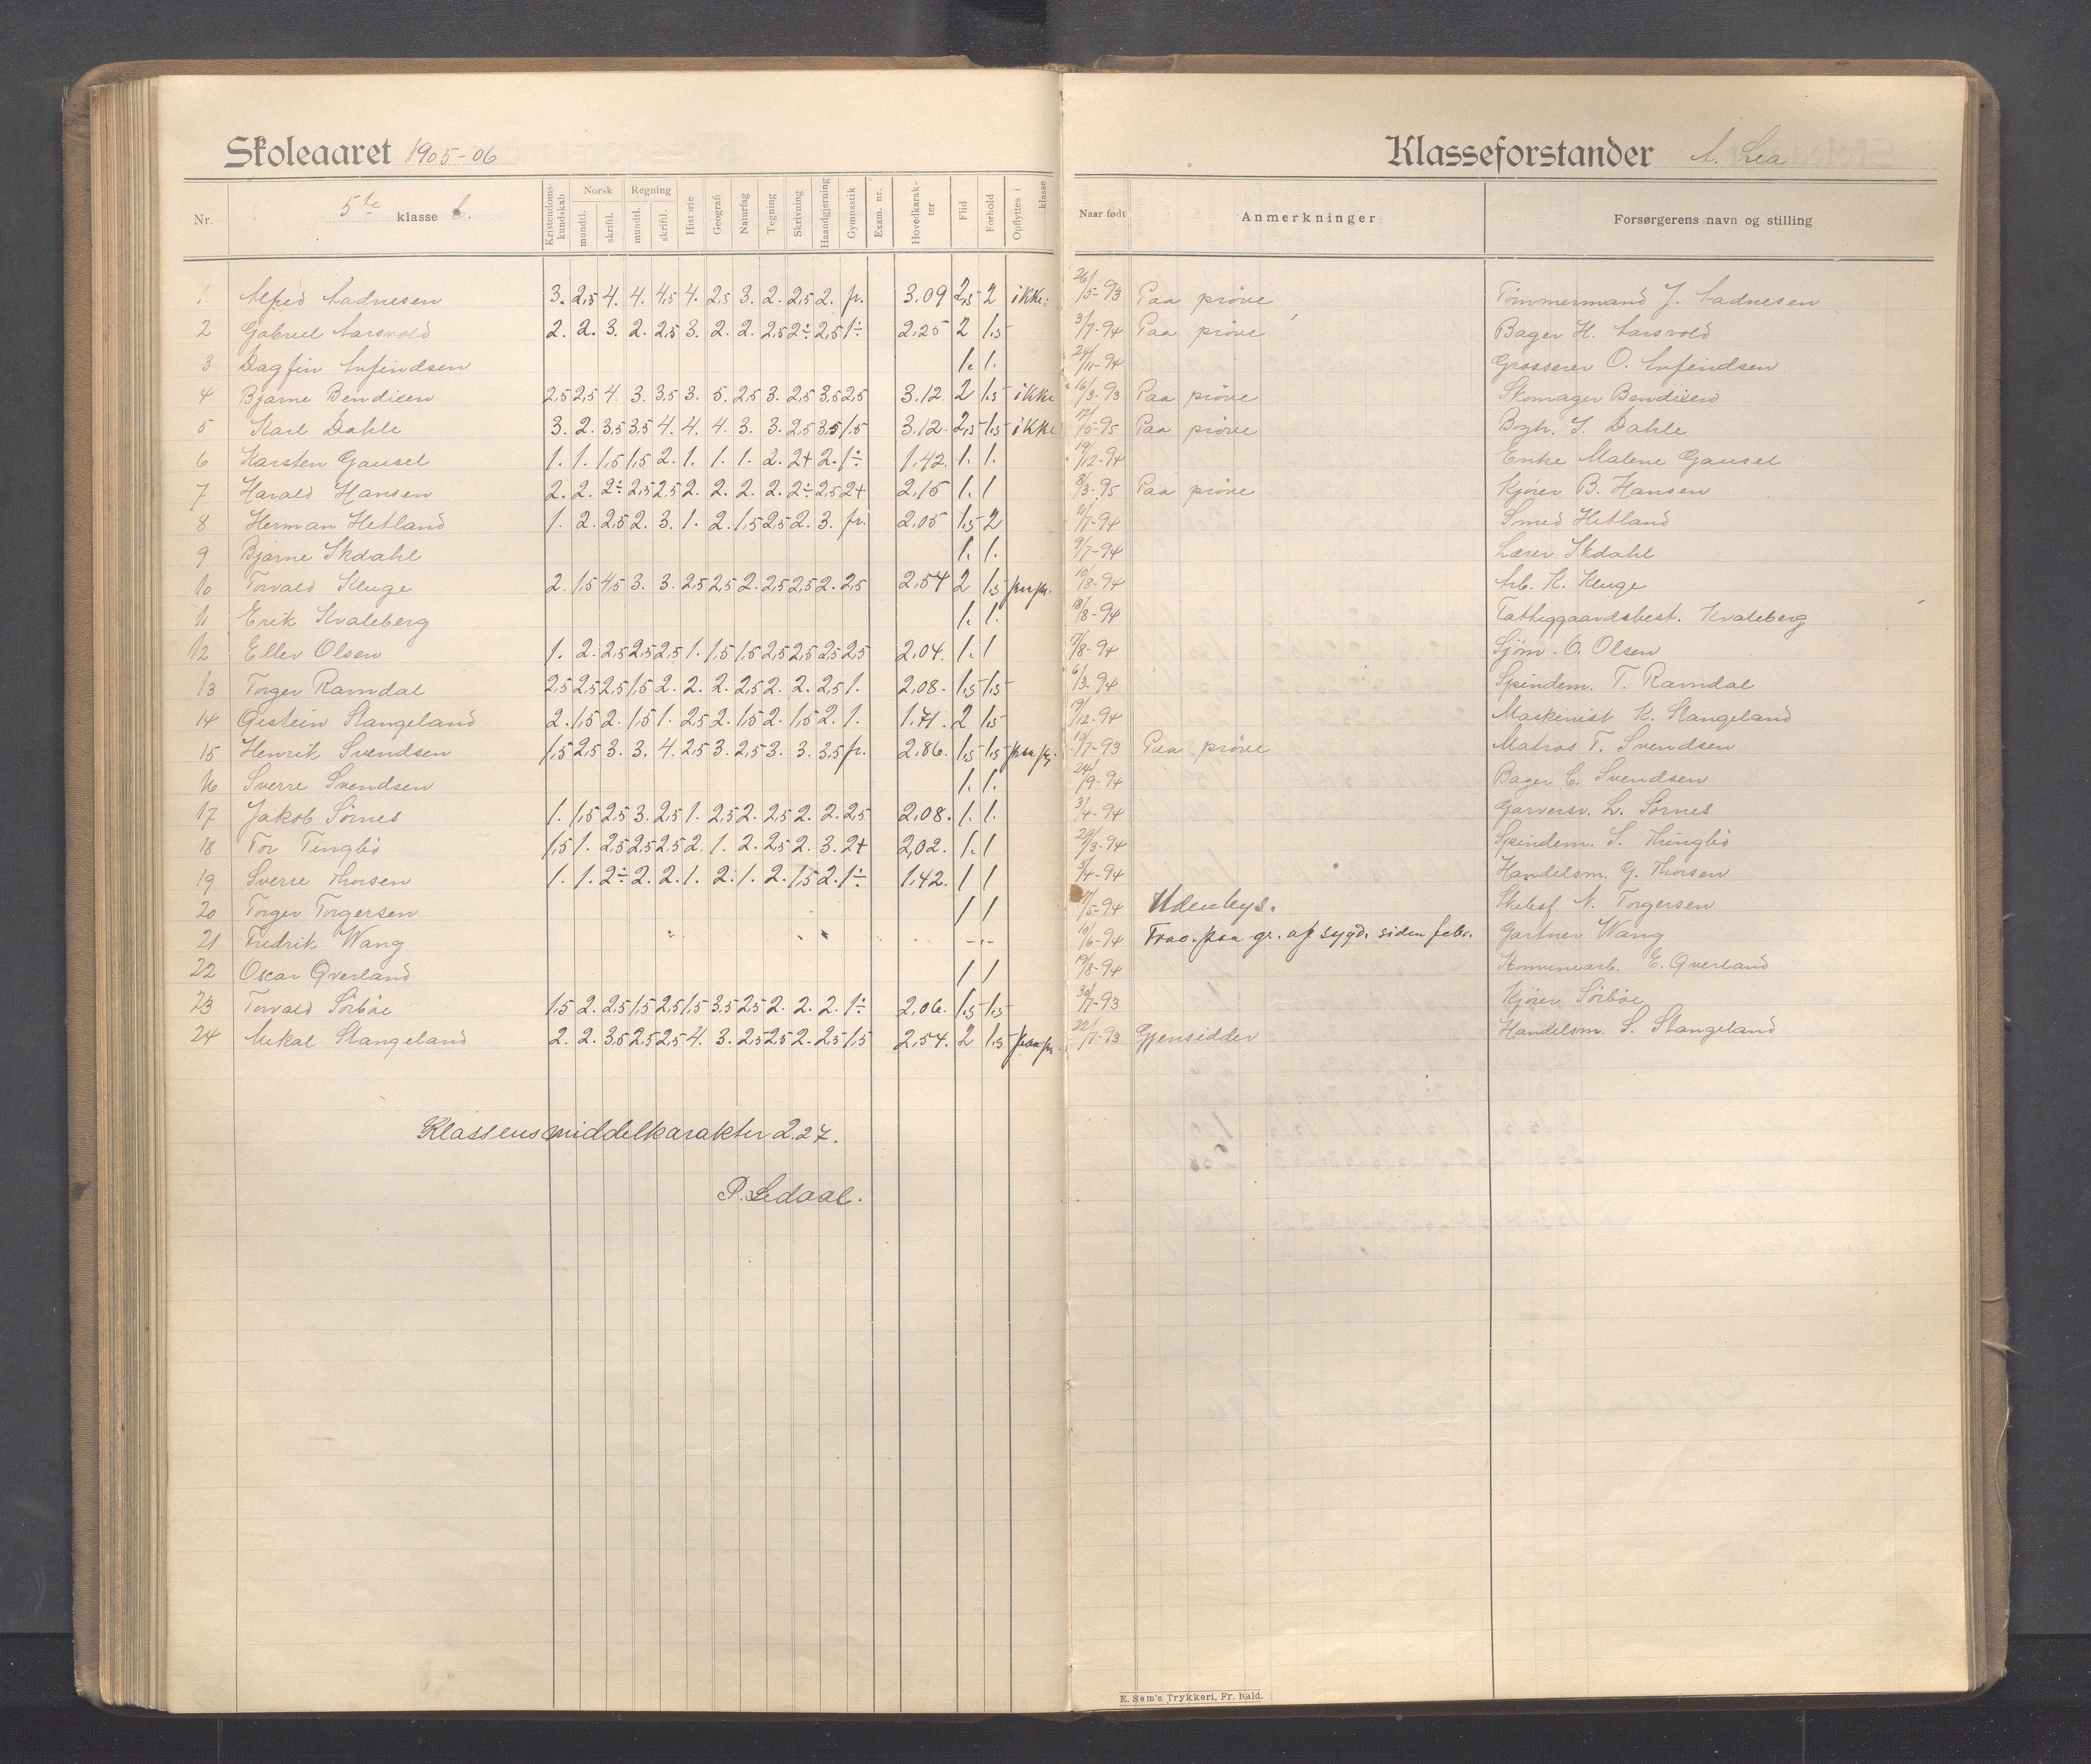 Skoleaaret 1905-06
Nr. 5te klasse C. Kristendomskundskab Norsk mundtl. skriftl. Regning mundtl. skriftl. Historie Geografi Naturfag Tegning Skrivning Haandgjerning Gymnastik Exam. nr. Hovedkarakter Flid Forhold Opflyttes i klasse
1. Alfred Aadnesen 3. 2,5 4. 4. 4,5 4. 2,5 3. 2. 2,5 2. fr. 3,09 2,5 2 ikke
2 Gabriel Aarsvold 2. 2. 3. 2. 2,5 3. 2. 2. 2,5 2÷ 2,5 1÷ 2,25 2 1,5
3 Dagfin Anfindsen 1. 1.
4 Bjarne Bendixen 2,5 2,5 4. 3. 3,5 3. 5. 2,5 3. 2,5 3,5 2,5 3,12. 2 1,5 ikke
5 Karl Dahle 3. 2. 3,5 3,5 4. 4. 4. 3. 3. 2,5 3,5 1,5 3,12. 2,5 1,5 ikke
6 Karsten Gausel 1. 1. 1,5 1,5 2. 1. 1. 1. 2. 2+ 2. 1÷ 1,42. 1. 1.
7 Harald Hansen 2. 2. 2÷ 2,5 2,5 2. 2. 2. 2. 2÷ 2,5 2+ 2,15 1. 1
8 Herman Hetland 1. 2. 2,5 2. 3. 1. 2. 1,5 2,5 2. 3. fr. 2,05 1,5 2
9 Bjarne Skdahl 1. 1.
10 Torvald Kluge 2. 1,5 4,5 3. 3. 2,5 2,5 2. 2,5 2,5 2. 2,5 2,54 2 1,5 paa pr.
11 Erik Kvaleberg 1. 1.
12 Ellev Olsen 1. 2. 2,5 2,5 2,5 1. 1,5 1,5 2,5 2,5 2,5 2,5 2,04. 1. 1
13 Torger Ramdal 2,5 2,5 2,5 1,5 2. 2. 2. 2,5 2. 2. 2,5 1. 2,08. 1,5 1,5
14 Øistein Stangeland 2. 1,5 2. 1,5 1. 2,5 2. 1,5 2. 1,5 2. 1. 1.71. 2 1,5
15 Henrik Svendsen 1,5 2,5 3. 3. 4. 2,5 3. 2,5 3. 3. 3,5 fr. 2,86. 1,5 1,5 paa pr.
16 Sverre Svendsen 1. 1.
17 Jakob Sørnes 1. 1,5 2,5 3. 2,5 1. 2,5 2. 2,5 2. 2. 2,5 2,08. 1. 1.
18 Tor Tingbø 1,5 1. 2,5 2,5 2,5 2. 1. 2. 2,5 2. 3. 2+ 2,02. 1. 1
19 Sverre Thorsen 1. 1. 2÷ 2. 2. 1. 2. 1. 2. 1,5 2. 1÷ 1,42. 1 1
20 Torger Torgersen 1 1
21 Fredrik Wang
22 Oscar Qverland 1 1
23 Torvald Sörböe 1,5 2. 2,5 1,5 2,5 1,5 3,5 2,5 2. 2. 2. 1÷ 2,06. 1,5 1,5
24 Mikal Stangeland 2. 2. 3,5 2,5 2,5 4. 3. 2,5 2,5 2. 2,5 1,5 2,54. 2 1,5 paa pr.
Klassens middelkarakter 2.27.
P. Ledaal.
Klasseforstander A. Lea
Naar født Anmerkninger Forsørgerens navn og stilling
26/5-93 Paa prøve Tömmermand J. Aadnesen
3/7-94 Paa prøve Bager H. Aarsvold
24/11-94 Grosserer O. Anfindsen
16/3-93 Paa prøve Skomager Bendixen
17/5-95 Paa prøve Bogh. S. Dahle
19/12-94 Enke Malene Gausel
8/3-95 Paa prøve Kjører B. Hansen
2/7-94 Smed Hetland
9/7-94 Lærer Skdahl
10/8-94 Arb. K. Kluge
18/8-94 Fattiggaardsbest. Kvaleberg
7/8-94 Sjöm. O. Olsen
6/3-94 Spindem. T. Ramdal
19/12-94 Maskinist K. Stangeland
10/7-93 Paa prøve Matros T. Svendsen
24/9-94 Bager C. Svendsen
3/4-94 Garversv. L. Sørnes
29/3-94 Spindem. S. Thingbö
3/4-94 Handelsm. G. Thorsen
17/5-94 Udenbys. N. Torgersen
10/6-94 Frav. paa gr. af sygd. siden febr. Gartner Wang
19/8-94 E. Qverland
30/7-93 Kjører Sörböe
22/7-93 Gjensidder Handelsm. S. Stangeland
E. Søm's Trykkeri, Fr. hald.